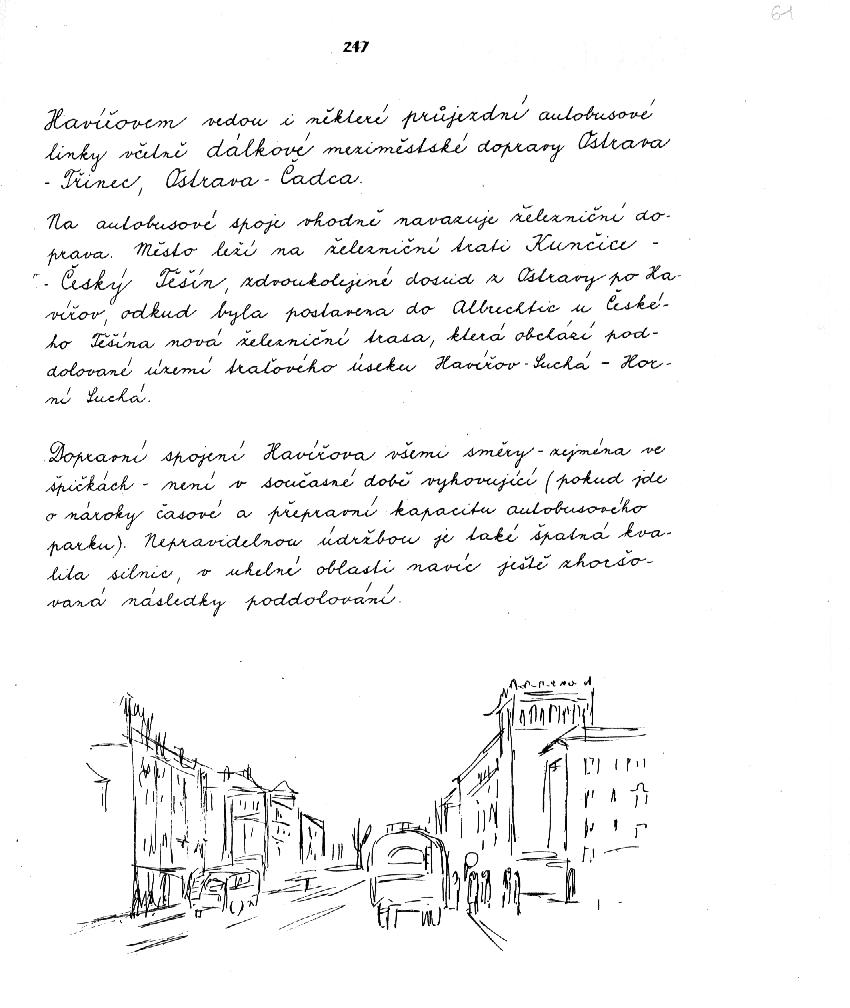 61
247
Havířovem vedou i některé průjezdní autobusové
linky včetně dálkové meziměstské dopravy Ostrava
- Třinec, Ostrava - Čadca.
Na autobusové spoje vhodně navazuje železniční do-
prava. Město leží na železniční trati Kunčice -
- Český Těšín, zdvoukolejené dosud z Ostravy po Ha-
vířov, odkud byla postavena do Albrechtic u České-
ho Těšína nová železniční trasa, která obchází pod-
dolované území traťového úseku Havířov-Suchá - Hor-
ní Suchá.
Dopravní spojení Havířova všemi směry - zejména ve
špičkách - není v současné době vyhovující (pokud jde
o nároky časové a přepravní kapacitu autobusového
parku). Nepravidelnou údržbou je také špatná kva-
lita silnic, v uhelné oblasti navíc ještě zhoršo-
vaná následky poddolování.